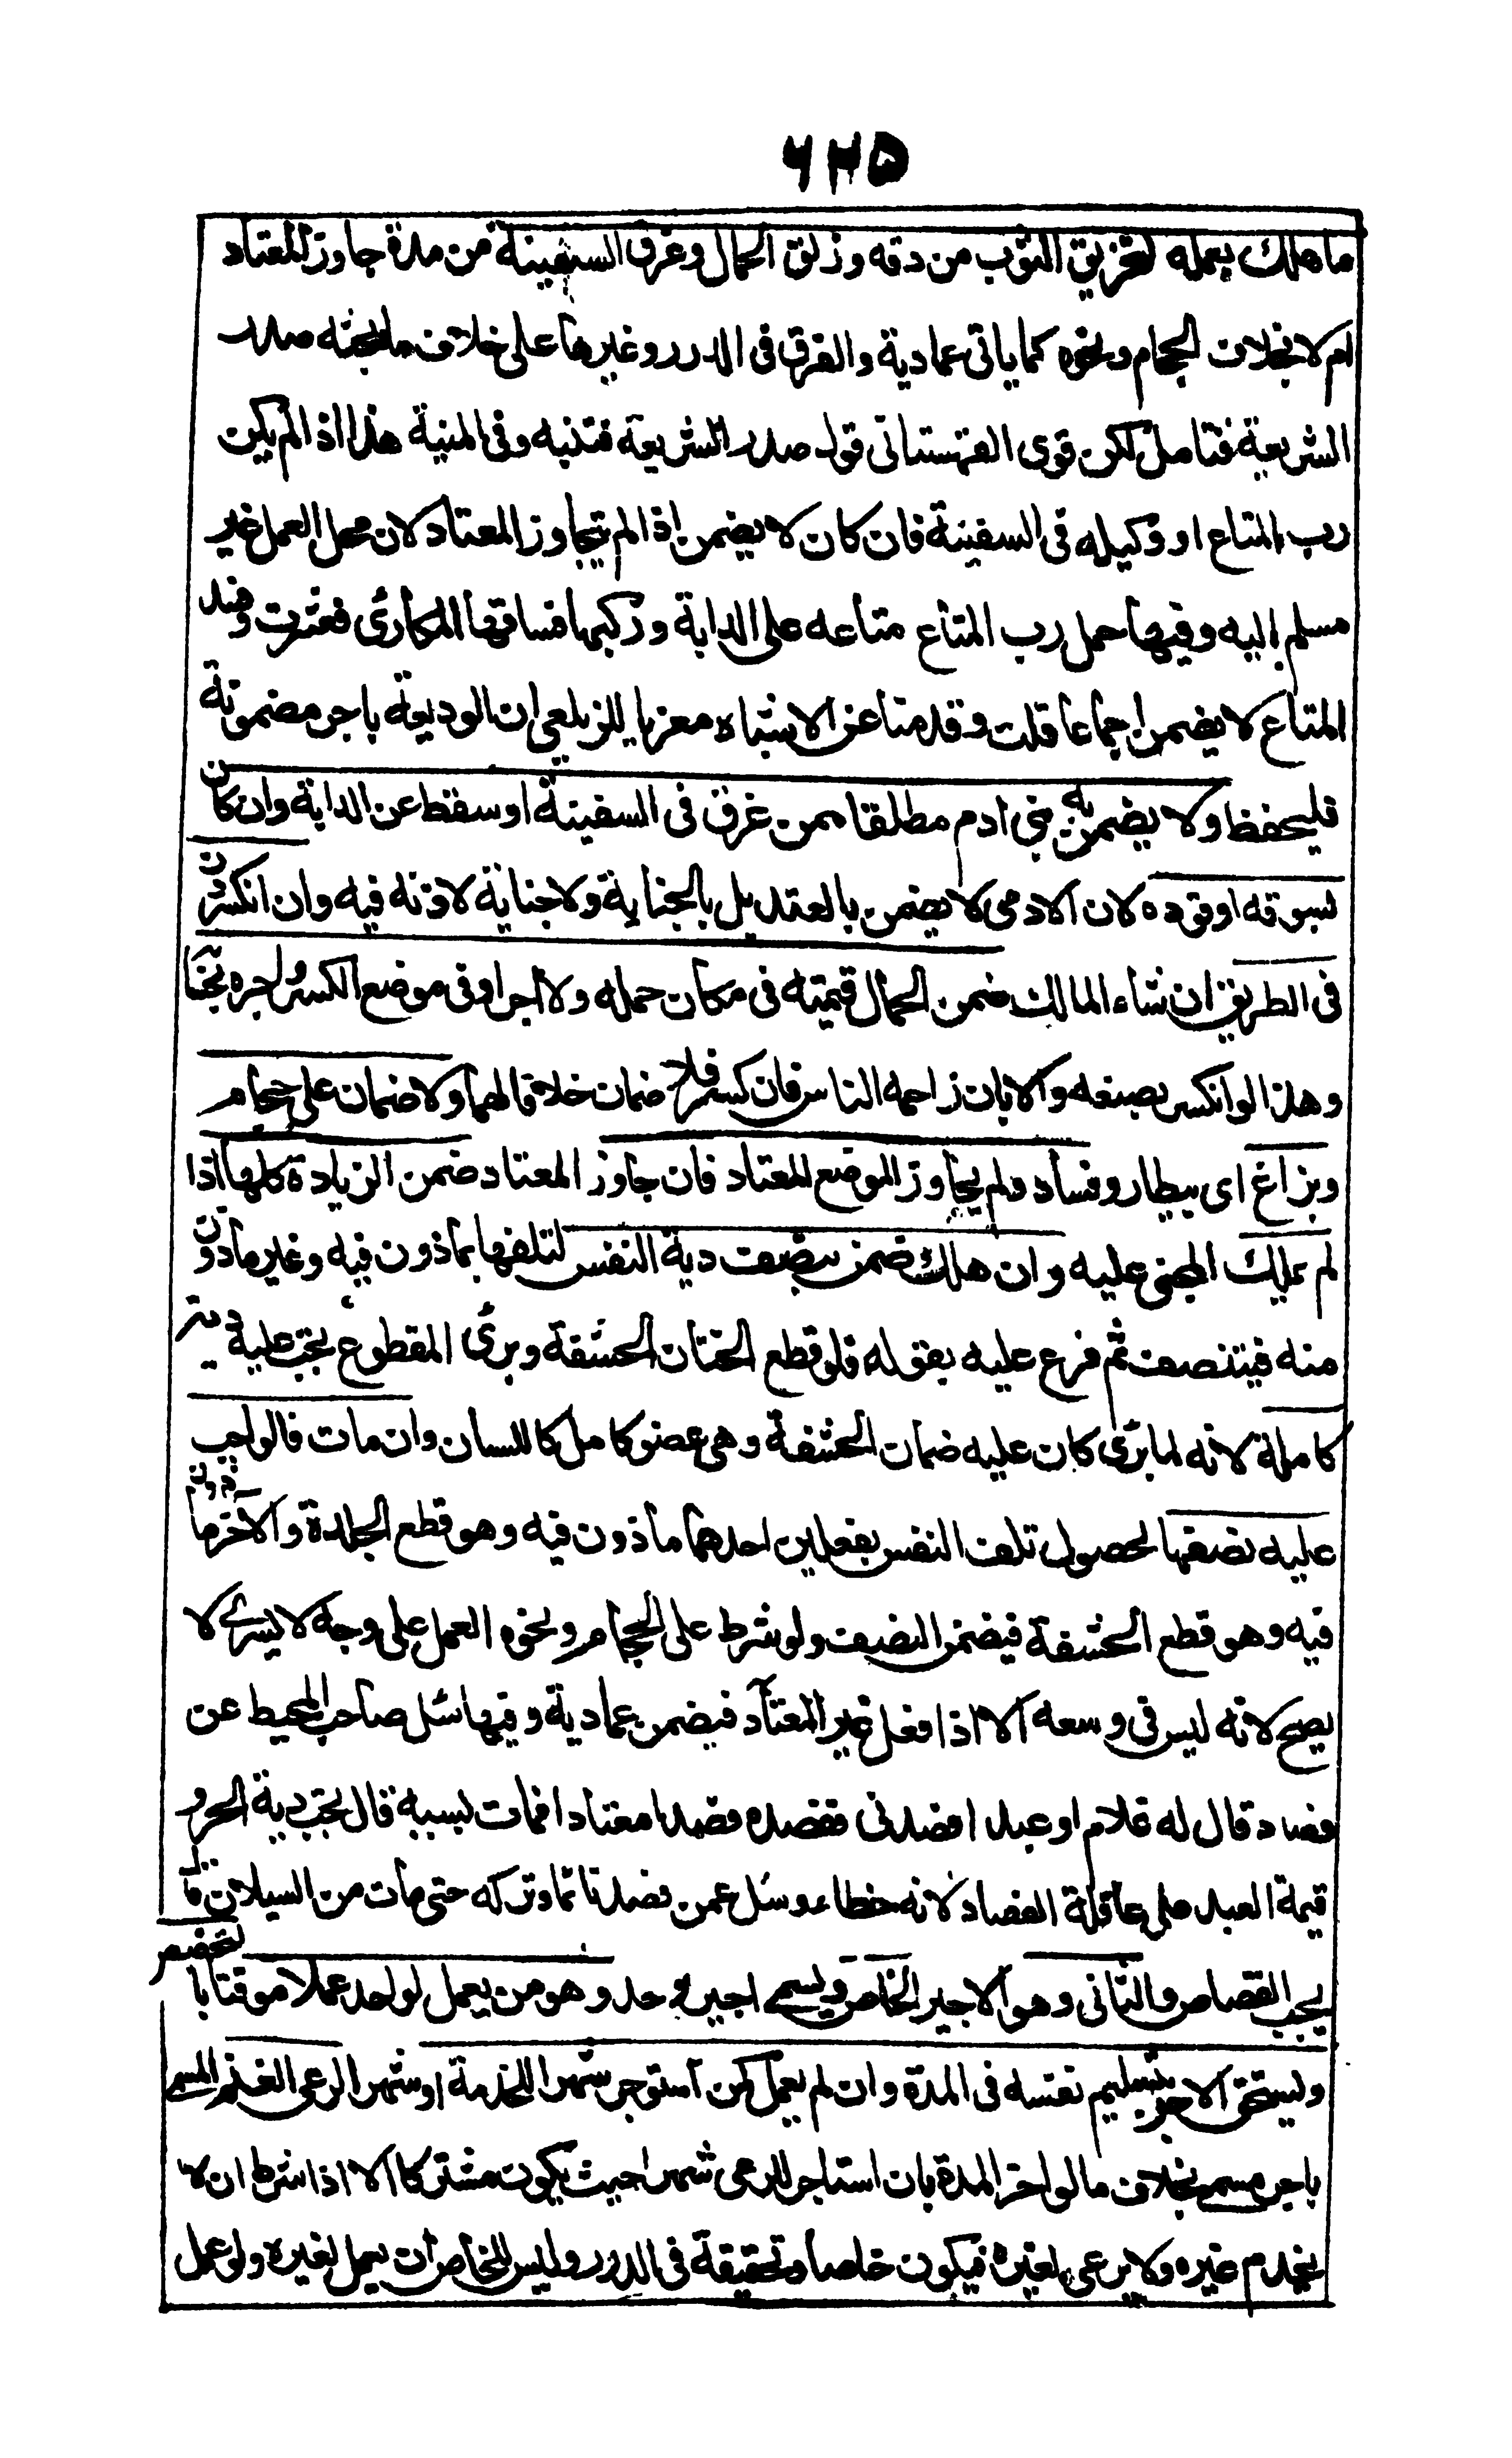 ٦٢٥
ما هلك بعمله كتخريق الثوب من دقه وزلق الحمال وغرق السفينة من مده جاوز المعتاد
ام لا بخلاف الحجام ونحوه كما ياتى عمادية والفرق فى الدرر وغيرها على خلاف ما بحثه صدر
الشريعة فتامل لكن قوى القهستانى قول صدر الشريعة فتنبه وفى المنية هذا اذا لم يكن
رب المتاع او وكيله فى السفينة فان كان لا يضمن اذا لم يتجاوز المعتاد لان محل العمل غير
مسلم اليه وفيها حمل رب المتاع متاعه على الدابة وركبها فساقها المكارى فعثرت وفسد
المتاع لا يضمن اجماعا قلت وقدمنا عن الاشباه معزيا للزيلعى ان الوديعة باجر مضمونة
فليحفظ ولا يضمن به بنى ادم مطلقا ممن غرق فى السفينة او سقط عن الدابة وان كان
بسوقه او قوده لان الادمى لا يضمن بالعقد بل بالجناية ولا جناية لاذنه فيه وان انكسر دن
فى الطريق ان شاء المالك ضمن الحمال قيمته فى مكان حمله ولا اجر او فى موضع الكسر واجره بحسابه
وهذا لو انكسر بصنعه والا بان زاحمه الناس فان كسر فلا ضمان خلافا لهما ولا ضمان على حجام
وبزاغ اى بيطار وفصاد ولم يجاوز الموضع المعتاد فان جاوز المعتاد ضمن الزيادة كلها اذا
لم يهلك المجنى عليه وان هلك ضمن نصف دية النفس لتلفها بماذون فيه وغير ماذون
منه فيتنصف ثم فرع عليه بقوله فلو قطع الختان الحشفة وبرئ المقطوع يجب عليه دية
كاملة لانه لما برئ كان عليه ضمان الحشفة وهى عضو كامل كاللسان وان مات فالواجب
عليه نصفها لحصول تلف النفس بفعلين احدهما ماذون فيه وهو قطع الجلدة والاخر غير ماذون
فيه وهو قطع الحشفة فيضمن النصف ولو شرط على الحجام ونحوه العمل على وجه لا يسرى لا
يصح لانه ليس فى وسعه الا اذا فعل غير المعتاد فيضمن عمادية وفيها سئل صاحب المحيط عن
فصاد قال له غلام او عبد افصدنى ففصده فصدا معتادا فمات بسببه قال تجب دية الحر و
قيمة العبد على عاقلة الفصاد لانه خطاء وسئل عمن فصد نائما وتركه حتى مات من السيلان قال
يجب القصاص والثانى وهو الاجير الخاص ويسمى اجير وحد وهو من يعمل لواحد عملا موقتا بالتخصيص
ويستحق الاجر بتسليم نفسه فى المدة وان لم يعمل كمن استوجر شهرا للخدمة او شهرا لرعى الغنم المسمى
باجر مسمى بخلاف ما لو اخر المدة بان استاجر للرعى شهرا حيث يكون مشتركا الا اذا شرط ان لا
يخدم غيره ولا يرعى لغيره فيكون خاصا وتحقيقه فى الدرر وليس للخاص ان يعمل لغيره ولو عمل